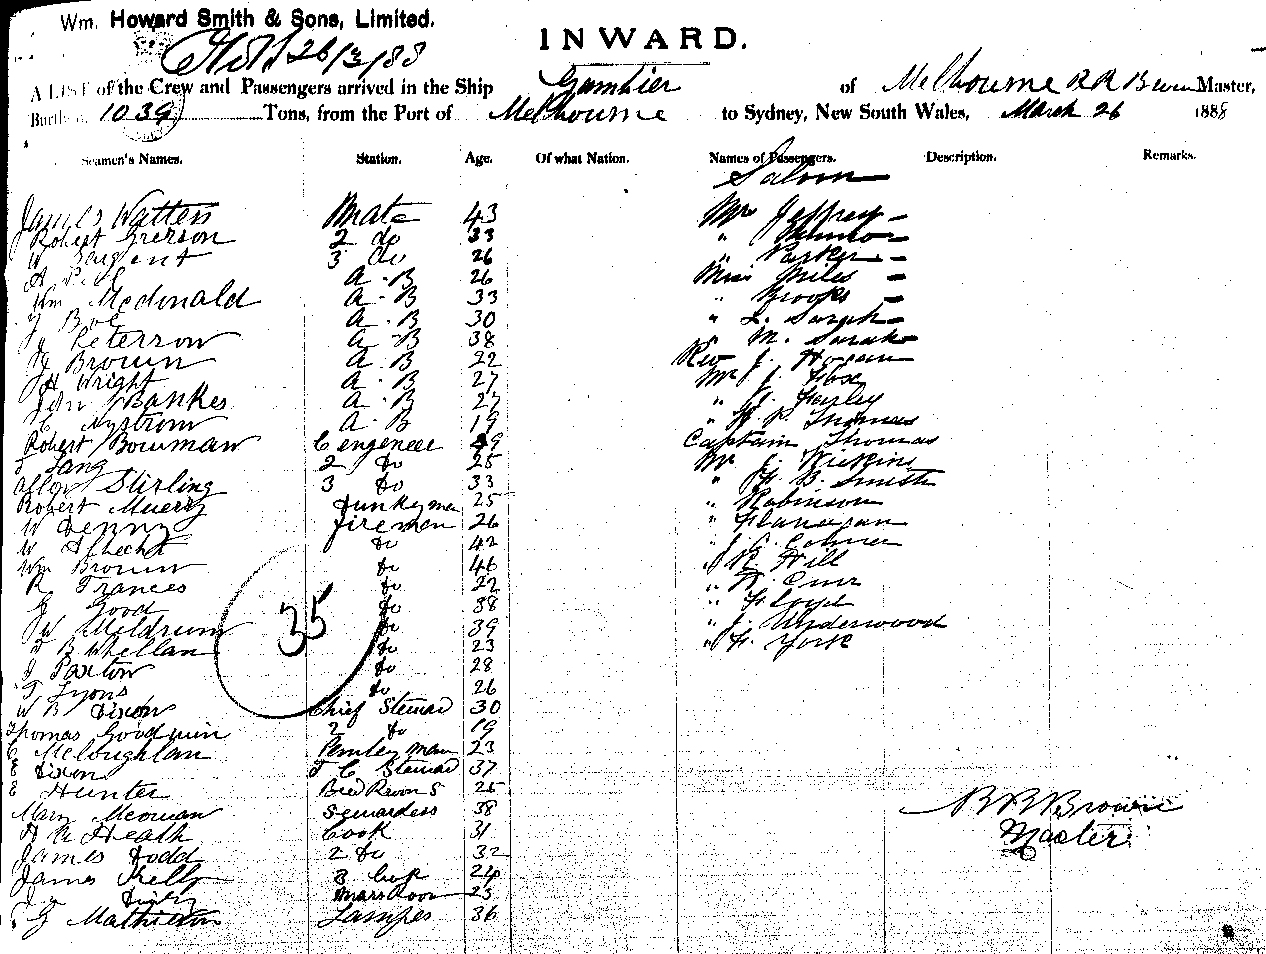 Wm. Howard Smith & Sons, Limited.
INWARD.
26/3/88
A LIST of the Crew and Passengers arrived in the Ship Gambier of Melbourne Master,
Burthen 1039 Tons, from the Port of Melbourne to Sydney, New South Wales, March 26 1888
Seamen's Names. Station. Age. Of what Nation. Names of Passengers. Description. Remarks.
Saloon
James Watters Mate 43 Mr Jeffrey
Robert Grerson 2 do 33 " Munro
W Sargent 3 do 26 " Parker
A A.B 26 Miss Miles
Wm Mcdonald A.B 33 " Brooks
A.B 30 " L. Sarah
J Peterson A.B 38 " M. Sarah
J Brown A.B 22 Rev J. Horan
H Wright A.B 27 Mr J. Fox
John Bankes A.B 27 " Farley
C Nystrom A.B 19 " Thomas
Robert Bowman C engeneer 49 Captain Thomas
Lang 2 do 25 Mr J. Wickins
Stirling 3 do 33 " H. B. Smith
Robert Muerry Dunkyman 25 " Robinson
W Denny firemen 26 " Flanagan
W do 42 "
Wm Brown do 46 " R. Hill
R Frances do 22 "
J Good do 38 " Floyd
W Meldrum do 39 " J. Underwood
J B Whellan do 23 " H. York
J Paxton do 28
T Lyons do 26
W B Dixon Chief Steward 30
Thomas Goodwin 2 do 19
C McLoughlan Pantry man 23
E Dixon F C Steward 37
E Hunter 25
Mary Stewardess 38
H Heath Cook 31
James Dodd 2 do 32
James Kelly 3 Cook 24
Mass Room 25
G Mathieson Lamps 36
35
B B Brown
Master